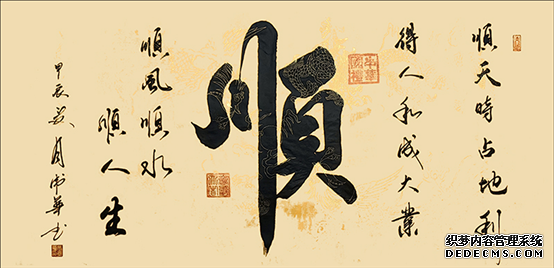 順天時占地利
得人和成大業
順
順風順水
順人生
甲辰
華书
织梦内容管理系统
DEDECMS.COM